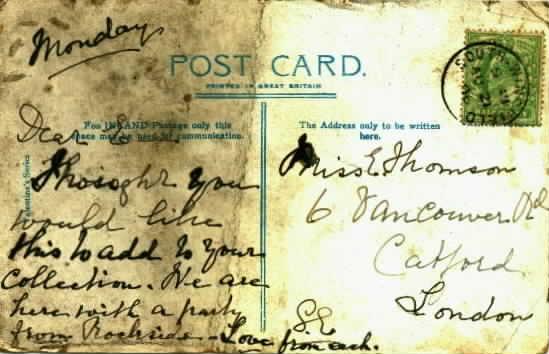 Monday
POST CARD.
PRINTED IN GREAT BRITAIN
For INLAND Postage only this
space may be used for communication.
The Address only to be written
here.
Valentine's Series
Dear E
Thought you
would like
this to add to your
collection. We are
here with a party
from Rockside - Love from each.
Miss E. Thomson
6 Vancouver Rd
Catford
London
S.E